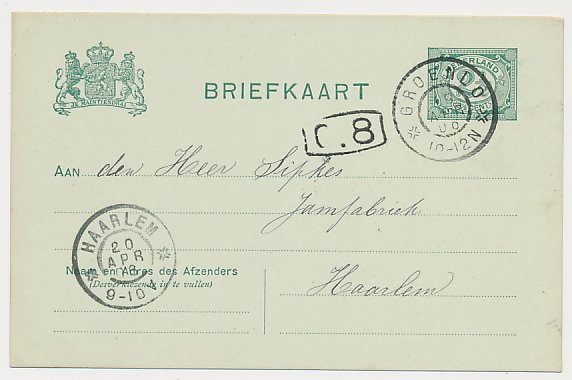 JE MAINTIENDRAI
BRIEFKAART
GROENLO
10-12N
C.8
AAN den Heer Sipkes
Jamfabriek
Haarlem
HAARLEM
20
APR
9-10
Naam en Adres des Afzenders
(Desverkiezende in te vullen)